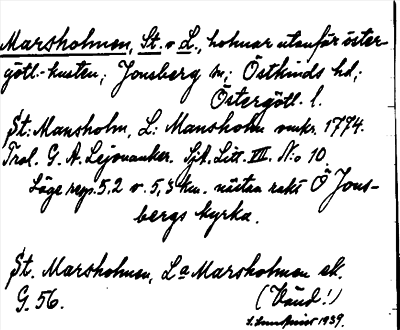 Marsholmen, St. o L., holmar utanför öster-
götl.-kusten; Jonsberg sn; Östkinds hd;
Östergötl. l.
St. Mansholm, L. Mansholm omkr. 1774.
Trol. G. A. Lejonanker. Sjk. Litt. VII. No 10.
Läge resp. 5,2 o. 5,3 km. nästan rakt Ö Jons-
bergs kyrka.
St. Marsholmen, La Marsholmen ek.
G. 56. (Vänd!)
1939.